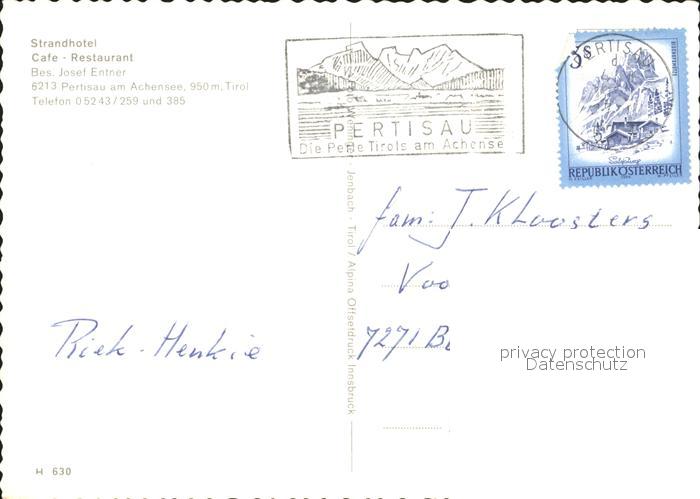 Strandhotel
Cafe - Restaurant
Bes. Josef Entner
6213 Pertisau am Achensee, 950 m, Tirol
Telefon 05243/259 und 385
PERTISAU
Die Perle Tirols am Achensee
PERTISAU
REPUBLIK ÖSTERREICH
Jenbach - Tirol / Alpina Offsetdruck Innsbruck
fam: J. Kloosters
Voo
7271 B
Riek - Henkie
privacy protection
Datenschutz
H 630